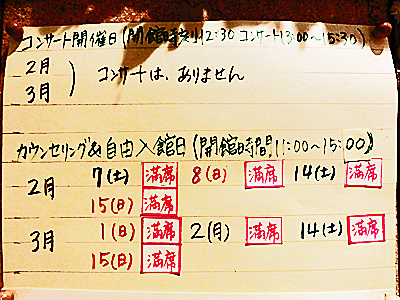 コンサート開催日(開館時刻12:30 コンサート13:00~15:30)
2月
3月 ) コンサートは、ありません
カウンセリング&自由入館日(開館時間11:00~15:00)
2月 7(土) 満席 8(日) 満席 14(土) 満席
15(日) 満席
3月 1(日) 満席 2(月) 満席 14(土) 満席
15(日) 満席